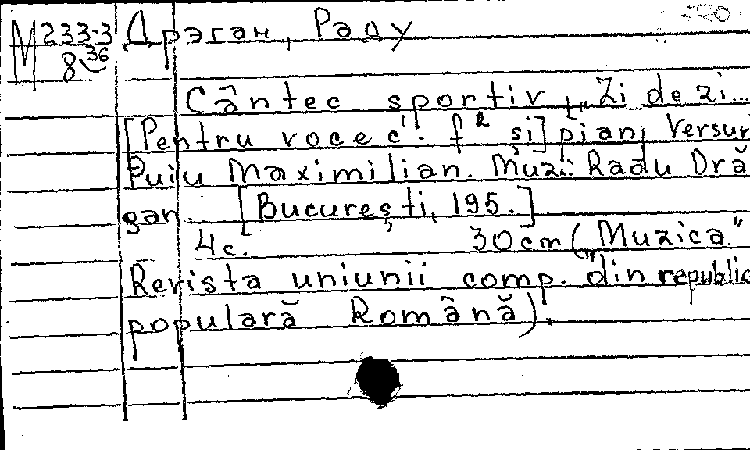 M 233-3 Дрэган, Раду
8 36
Cântec sportiv „Zi de zi...
[Pentru voce c'. f² și] pian, Versur
Puiu Maximilian. Muzi: Radu Dră
gan. [București, 195.]
4c. 30cm („Muzica"
Revista uniunii comp. din republic
populară Română).